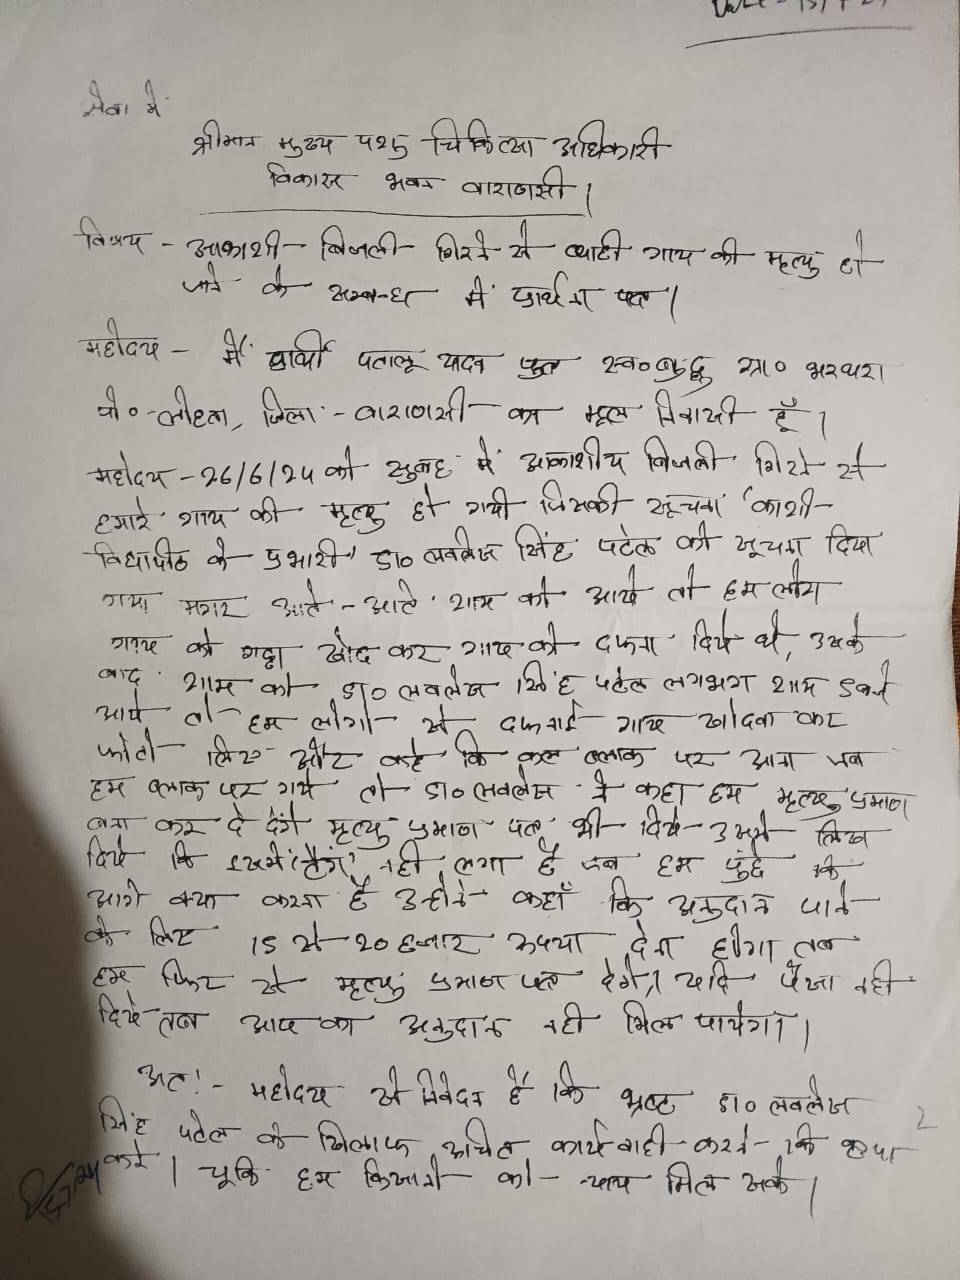 सेवा में
श्रीमान मुख्य पशु चिकित्सा अधिकारी
विकास भवन वाराणसी।
विषय - आकाशी बिजली गिरने से ब्याही गाय की मृत्यु हो
जाने के सम्बन्ध में प्रार्थना पत्र।
महोदय - मैं प्रार्थी पतालू यादव पुत्र स्व० बुद्धू ग्रा० भरथरा
पो० - लोहता, जिला - वाराणसी का मूल निवासी हूँ।
महोदय - 26/6/24 को सुबह में आकाशीय बिजली गिरने से
हमारे गाय की मृत्यु हो गयी जिसकी सूचना 'काशी-
विद्यापीठ के प्रभारी' डा० लवलेश सिंह पटेल को सूचना दिया
गया मगर आते-आते शाम को आये तो हम लोग
गाय को गड्ढा खोद कर गाय को दफना दिये थे, उसके
बाद शाम को डा० लवलेश सिंह पटेल लगभग शाम 5 बजे
आये तो हम लोगो से दफनाई गाय खोदवा कर
फोटो लिए और कहे कि कल ब्लाक पर आना जब
हम ब्लाक पर गये तो डा० लवलेश ने कहा हम मृत्यु प्रमाण
बना कर दे देंगे मृत्यु प्रमाण पत्र भी दिये उसमे लिख
दिये कि इसमें 'टैग' नही लगा है जब हम पुछे कि
आगे क्या करना है उन्होने कहाँ कि अनुदान पाने
के लिए 15 से 20 हजार रूपया देना होगा तब
हम फिर से मृत्यु प्रमाण पत्र देगे, यदि पैसा नही
दिये तब आप का अनुदान नही मिल पायेगा।
अतः - महोदय से निवेदन है कि भ्रष्ट डा० लवलेश
सिंह पटेल के खिलाफ उचित कार्यवाही करने की कृपा
करे। चूकि हम किसानो को न्याय मिल सके।
2